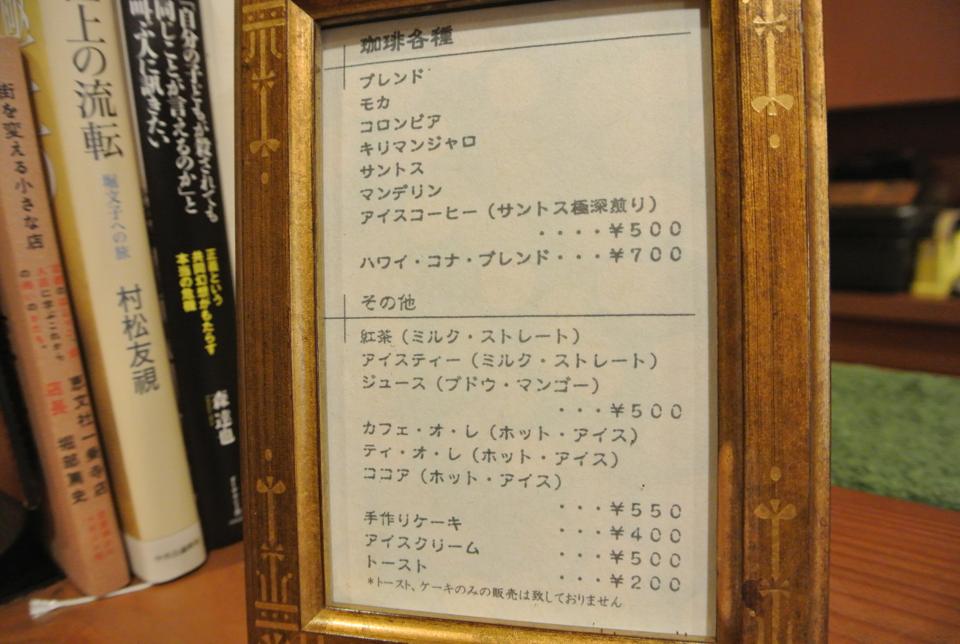 街を変える小さな店
店長
恵文社一乗寺店
堀部篤史
上の流転
堀文子への旅
村松友視
「自分の子どもが殺されても
同じことが言えるのか」と
叫ぶ人に訊きたい
正義という
共同幻想がもたらす
本当の危機
森達也
珈琲各種
ブレンド
モカ
コロンビア
キリマンジャロ
サントス
マンデリン
アイスコーヒー（サントス極深煎り）
・・・・¥500
ハワイ・コナ・ブレンド・・・¥700
その他
紅茶（ミルク・ストレート）
アイスティー（ミルク・ストレート）
ジュース（ブドウ・マンゴー）
・・・¥500
カフェ・オ・レ（ホット・アイス）
ティ・オ・レ（ホット・アイス）
ココア（ホット・アイス）
・・・¥550
手作りケーキ ・・・¥400
アイスクリーム ・・・¥500
トースト ・・・¥200
*トースト、ケーキのみの販売は致しておりません